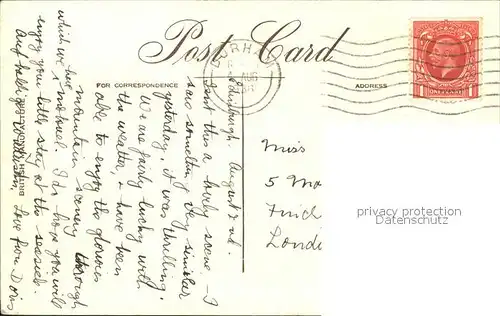 Post Card
FOR CORRESPONDENCE
ADDRESS
DURHAM
AUG
ONE PENNY
Edinburgh. August 2nd.
Isn't this a lovely scene - I
saw something very similar
yesterday. It was thrilling.
We are fairly lucky with
the weather, & have been
able to enjoy the glorious
mountain scenery through
which we
I do hope you will
enjoy your little stay at the seaside.
Love from Doris
Miss
5 Ma
Finch
Londo
privacy protection
watermark